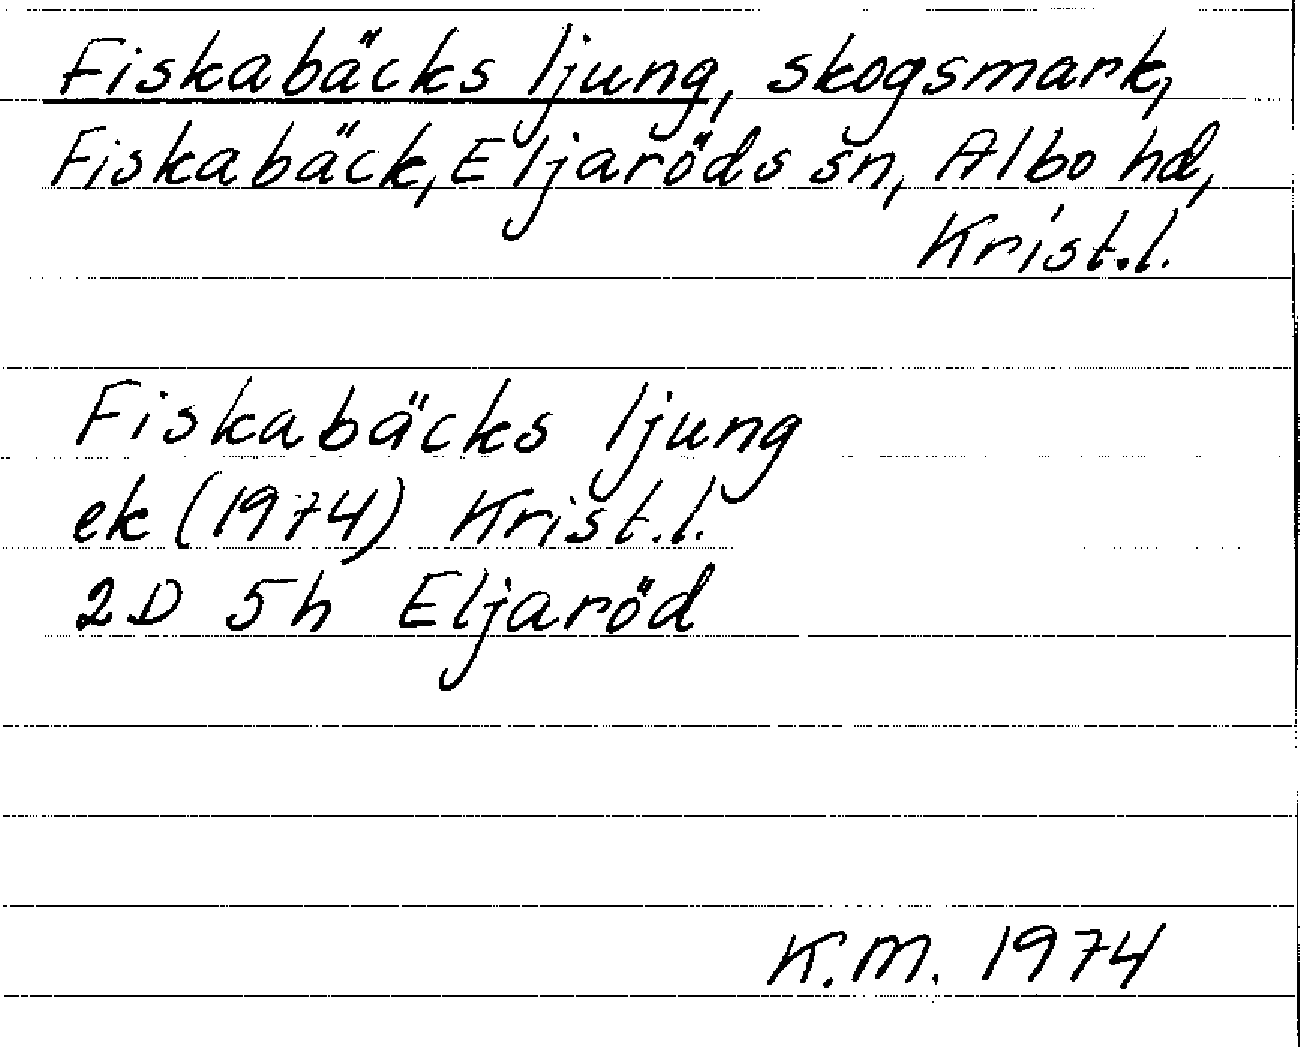 Fiskabäcks ljung, skogsmark,
Fiskabäck, Eljaröds sn, Albo hd,
Krist.l.
Fiskabäcks ljung
ek (1974) Krist.l.
2D 5h Eljaröd
K.M. 1974